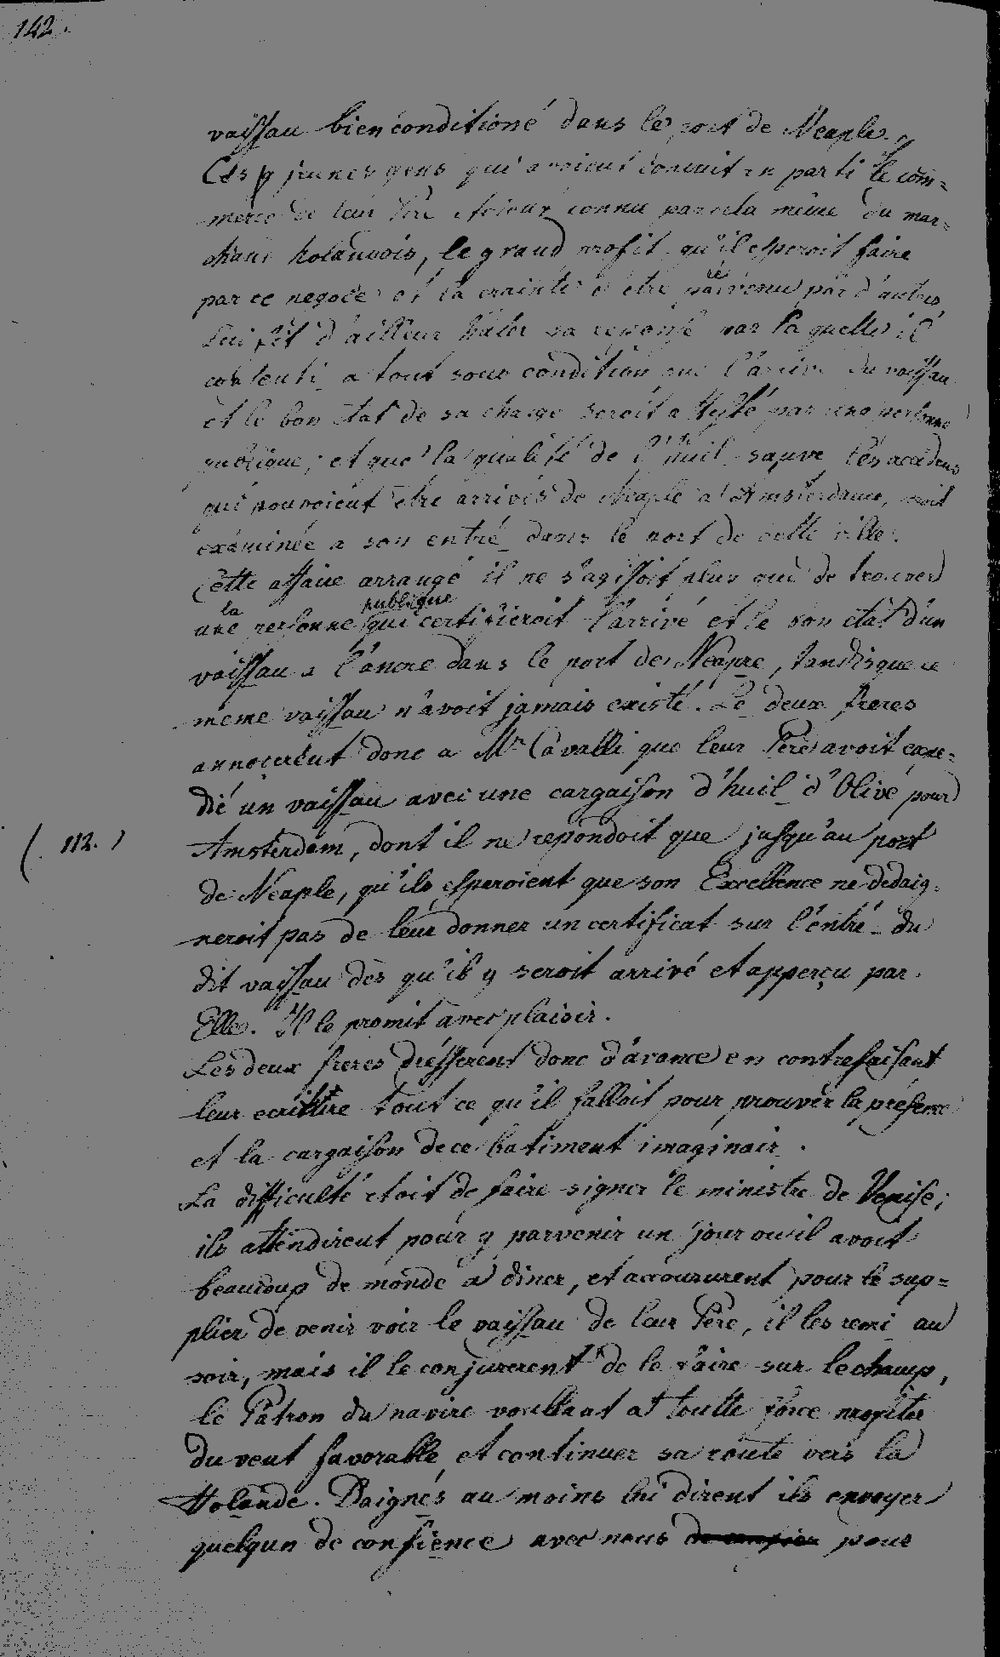 142.
vaissau bien conditioné dans le port de Neaple.
Ces jeunes gens qui avoient conduit en parti le com=
merce de leur Père etoient connu par cela même du mar=
chant holandois, le grand profit qu'il esperoit faire
par ce negoce et la crainte d'etre prévenu par d'autres
lui fit d'ailleur hater sa reponse par laquelle il
consenti a tout sous condition que l'arivé du vaissau
et le bon état de sa charge seroit attesté par une personne
publique; et que la qualité de l'huil sauve les accidens
qui pouroient etre arrivés de Neaple a Amsterdame, soit
examinée a son entré dans le port de cette ville.
Cette affaire arrangé il ne s'agissoit plus que de trouver
la
une personne publique qui certifieroit l'arrivé et le bon état d'un
vaissau a l'ancre dans le port de Neaple, tandisque ce
meme vaissau n'avoit jamais existé. Le deux freres
annocerent donc a Mr Cavalli que leur Père avoit expe=
dié un vaissau avec une cargaison d'huil d'Olive pour
(112.) Amsterdam, dont il ne repondoit que jusqu'au port
de Neaple, qu'ils esperoient que son Excellence ne dedaig=
neroit pas de leur donner un certificat sur l'entré du
dit vaissau dès qu'il y seroit arrivé et apperçu par
Elle. Il le promit avec plaisir.
Les deux freres dresserent donc d'avance en contrefaisant
leur ecritture tout ce qu'il falloit pour prouver la présence
et la cargaison de ce batiment imaginair.
La difficulté etoit de faire signer le ministre de Venise;
ils attendirent pour y parvenir un jour ou il avoit
beaucoup de monde a diner, et accoururent pour le sup=
plier de venir voir le vaissau de leur Père, il les remi au
soir, mais il le conjurerent de le faire sur le champ,
le Patron du navire voullant a toutte force profiter
du vent favorable et continuer sa route vers la
Holande. Daignés au moins lui dirent ils envoyer
quelqun de confience avec nous pour